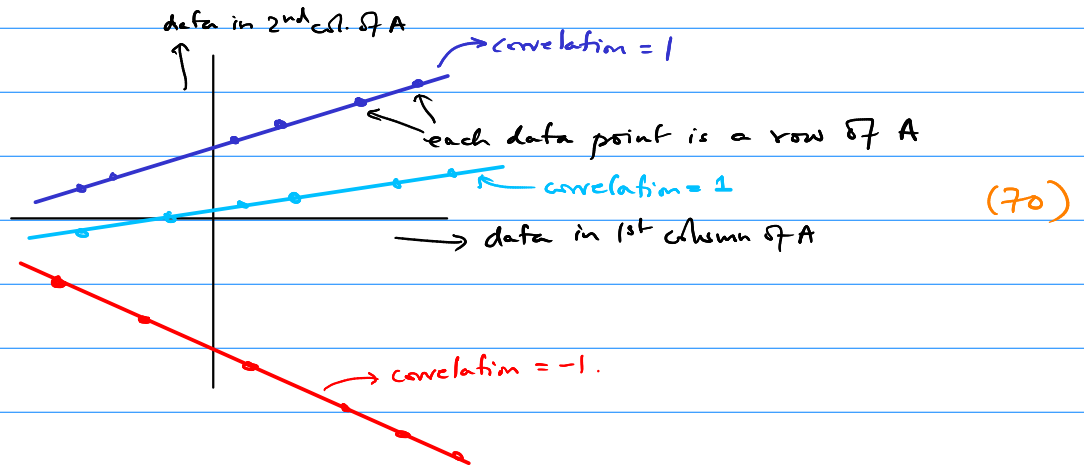 data in 2nd col. of A
correlation = 1
each data point is a row of A
correlation = 1
(70)
data in 1st column of A
correlation = -1.